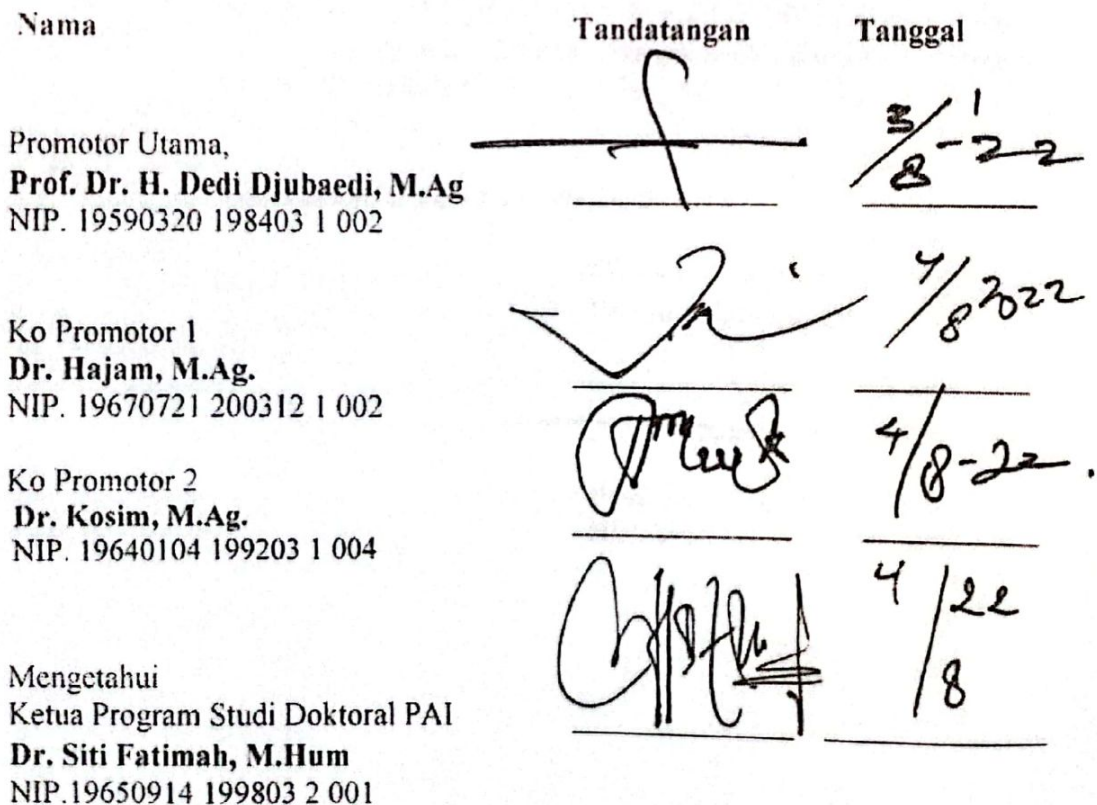 Nama Tandatangan Tanggal
Promotor Utama,
Prof. Dr. H. Dedi Djubaedi, M.Ag
NIP. 19590320 198403 1 002
3/8-22
Ko Promotor 1
Dr. Hajam, M.Ag.
NIP. 19670721 200312 1 002
4/8 2022
Ko Promotor 2
Dr. Kosim, M.Ag.
NIP. 19640104 199203 1 004
4/8-22.
Mengetahui
Ketua Program Studi Doktoral PAI
Dr. Siti Fatimah, M.Hum
NIP.19650914 199803 2 001
4/8 22